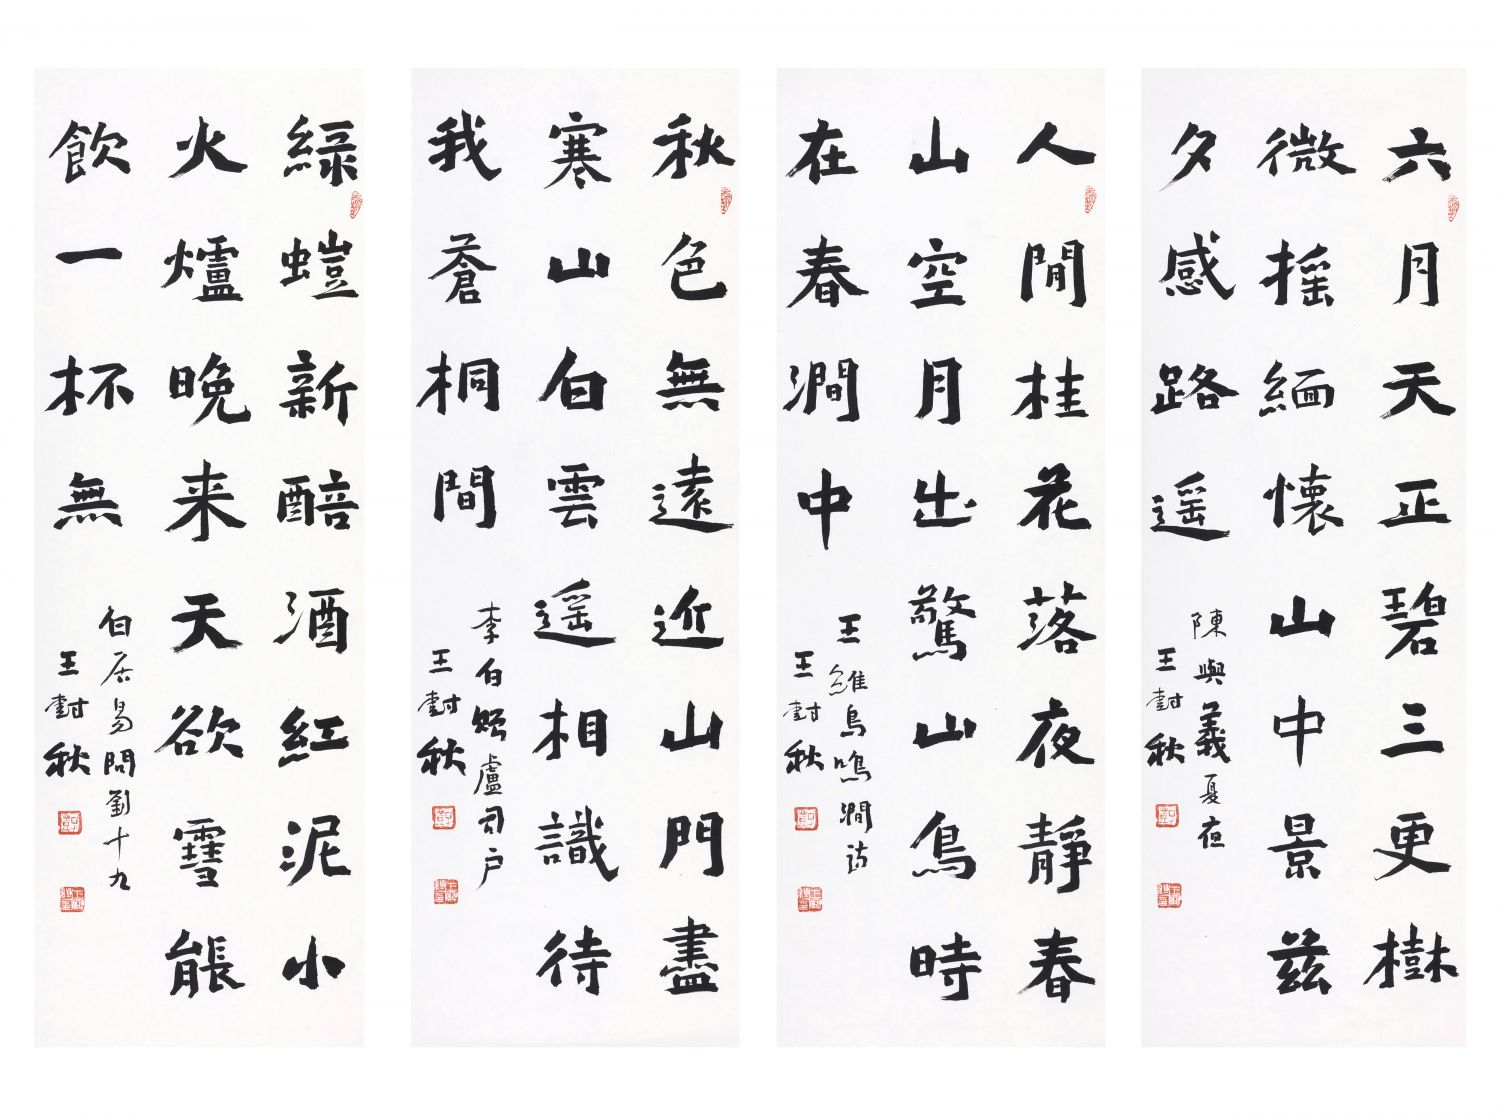 六月天正碧三更樹
微摇緬懷山中景兹
夕感路遥
陳與義夏夜
王封秋
人閒桂花落夜靜春
山空月出驚山鳥時
在春澗中
王維鳥鳴澗詩
王封秋
秋色無遠近山門盡
寒山白雲遥相識待
我蒼桐間
李白贈盧司户
王封秋
緑螘新醅酒紅泥小
火爐晚来天欲雪能
飲一杯無
白居易問劉十九
王封秋